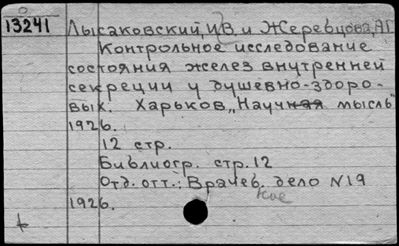 13241 Лысаковский, И.В. и Жеревцова, А.Г.
Контрольное исследование
состояния желез внутренней
секреции у душевно-здоро-
вых. Харьков, "Научная мысль"
1926.
12 стр.
Библиогр. стр. 12
Отд. отт.: Врачев. дело N19
ное
1926.